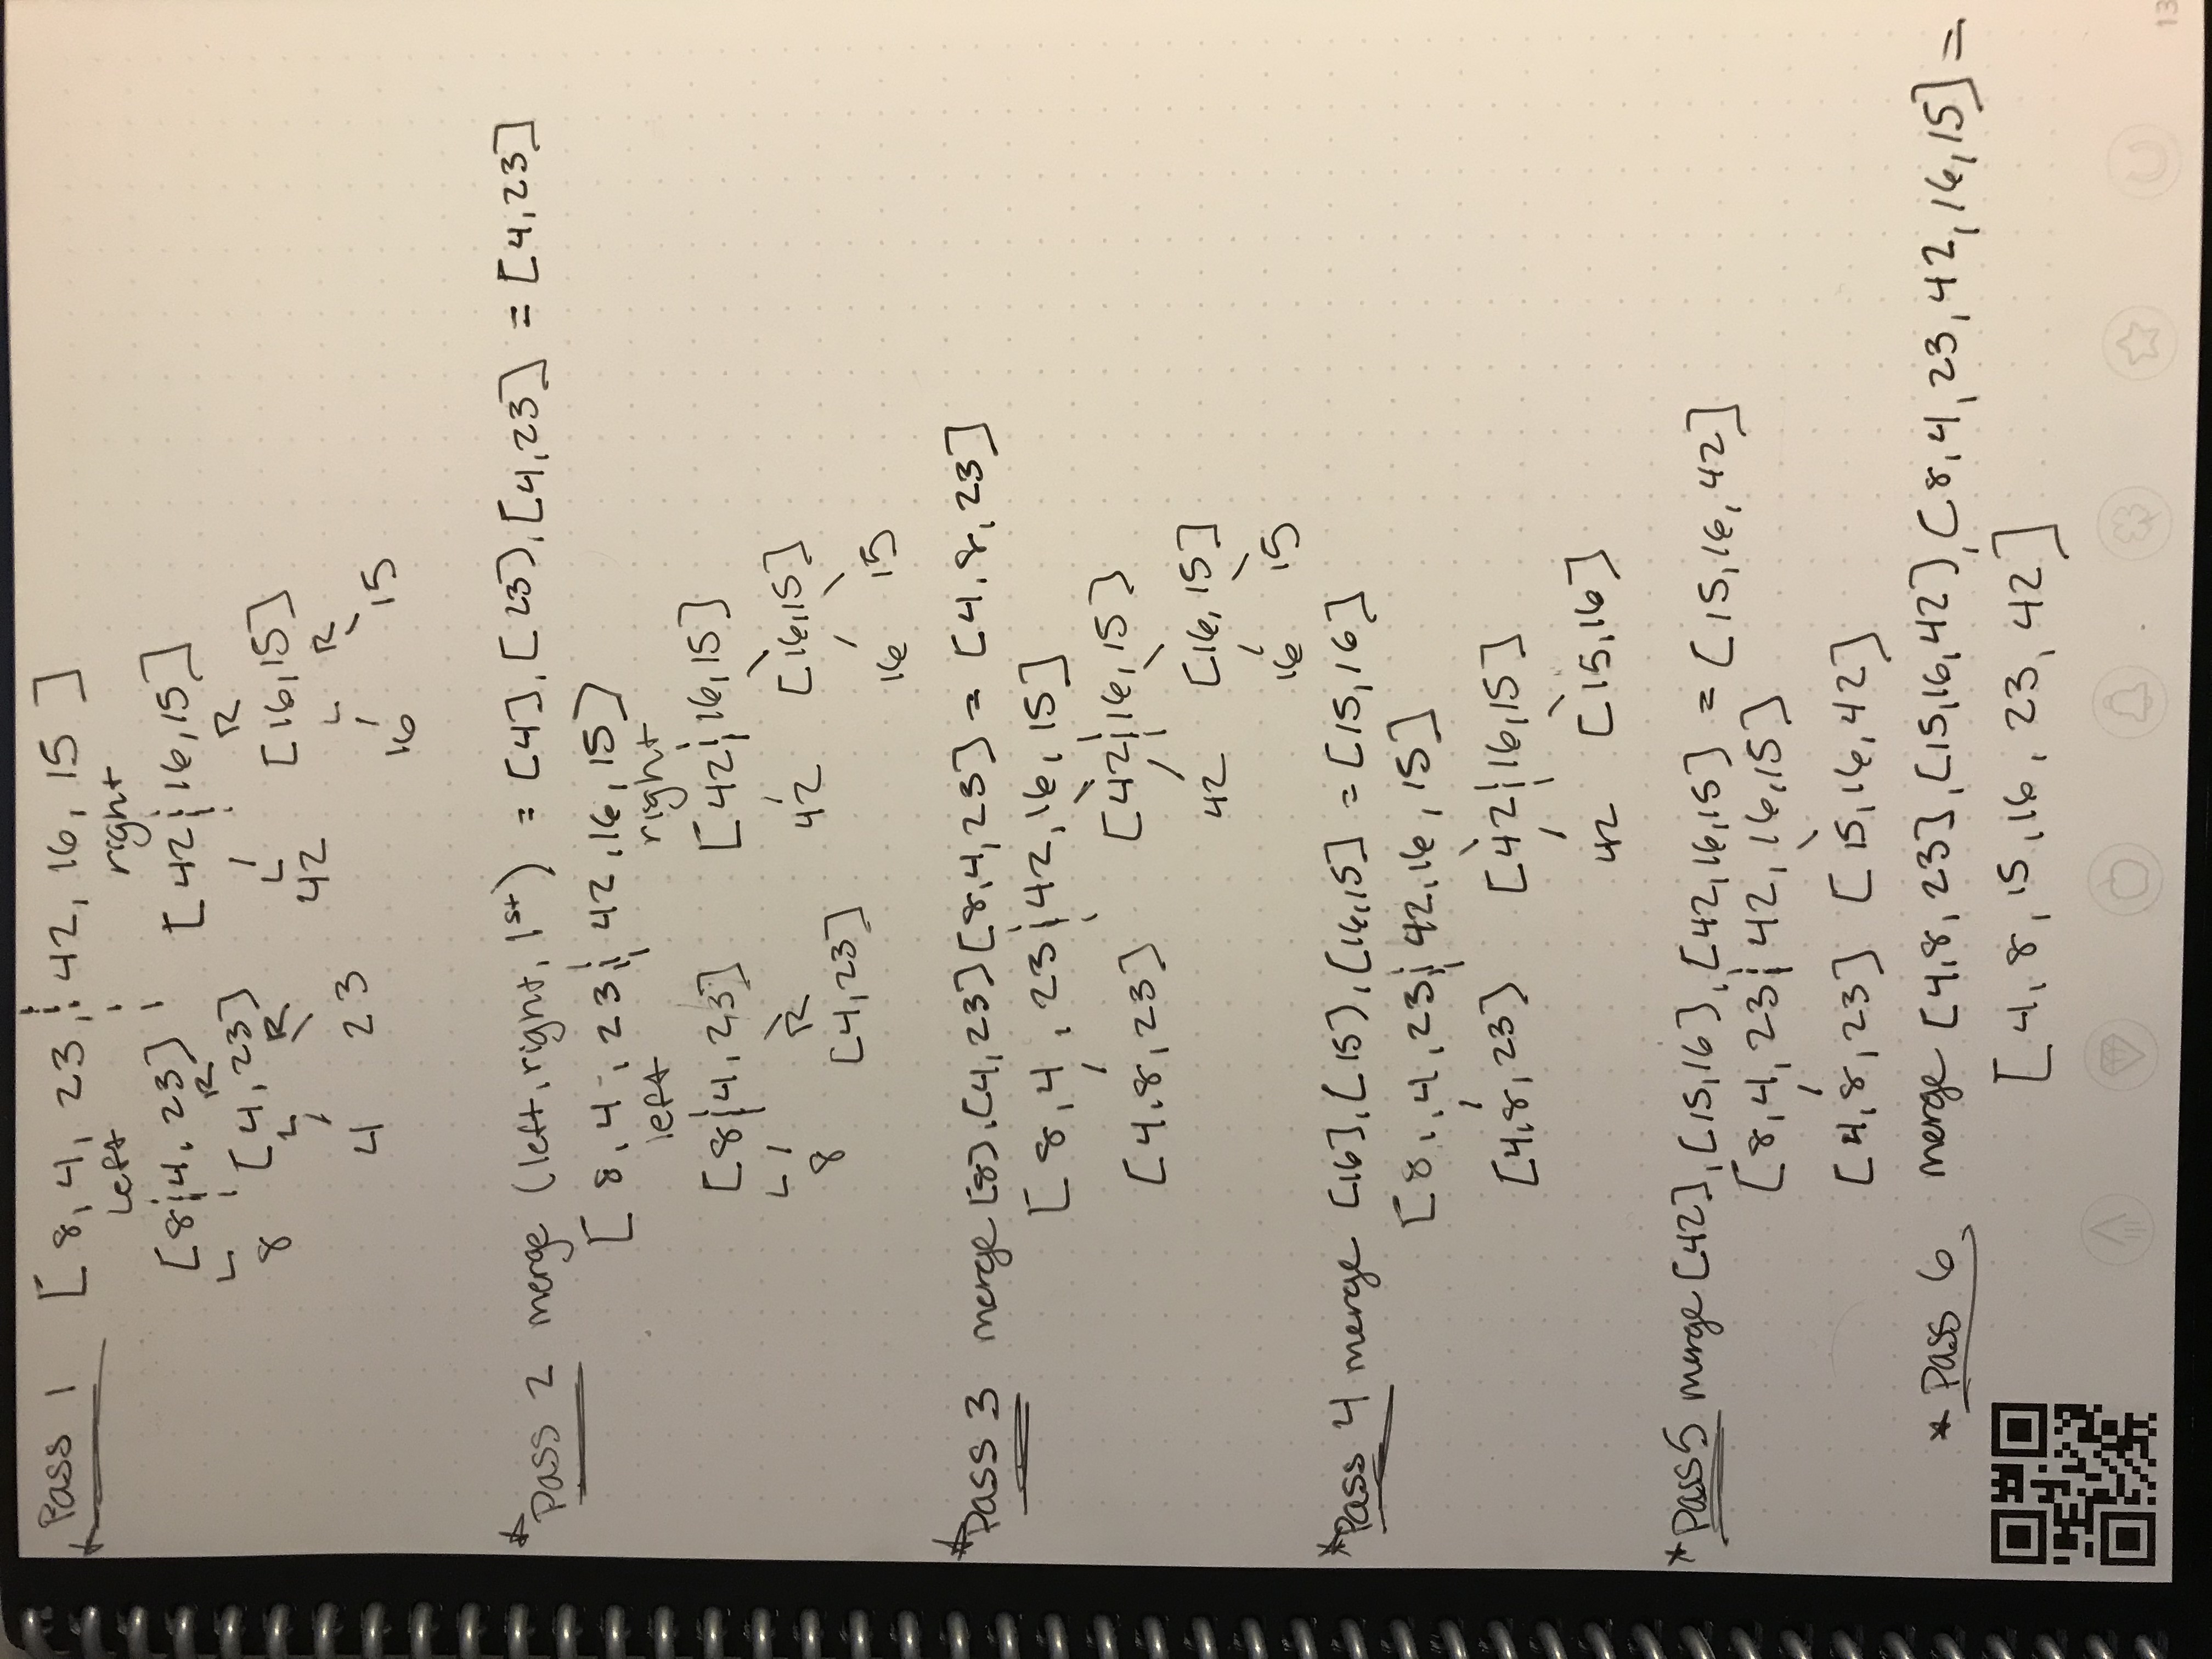 Pass 1 [8, 4, 23, ¦ 42, 16, 15]
left right
[8¦4, 23] [42¦16,15]
L R R
8 [4,23] L [16,15]
L R 42 L R
4 23 16 15
* Pass 2 merge (left, right, 1st) = [4], [23], [4,23] = [4,23]
[8, 4, 23¦ 42, 16, 15]
left right
[8¦4, 23] [42¦16,15]
L R 42 [16,15]
8 [4,23] 16 15
* Pass 3 merge [8], [4,23] [8,4,23] = [4,8,23]
[8, 4, 23¦42, 16, 15]
[4,8,23] [42¦16,15]
42 [16,15]
16 15
* Pass 4 merge [16], [15], [16,15] = [15,16]
[8, 4, 23¦ 42, 16, 15]
[4,8,23] [42¦16,15]
42 [15,16]
* Pass 5 merge [42], [15,16], [42,16,15] = [15,16,42]
[8,4,23¦ 42, 16,15]
[4,8,23] [15,16,42]
* Pass 6 merge [4,8,23], [15,16,42], [8,4,23,42,16,15] =
[4, 8, 15, 16, 23, 42]
13